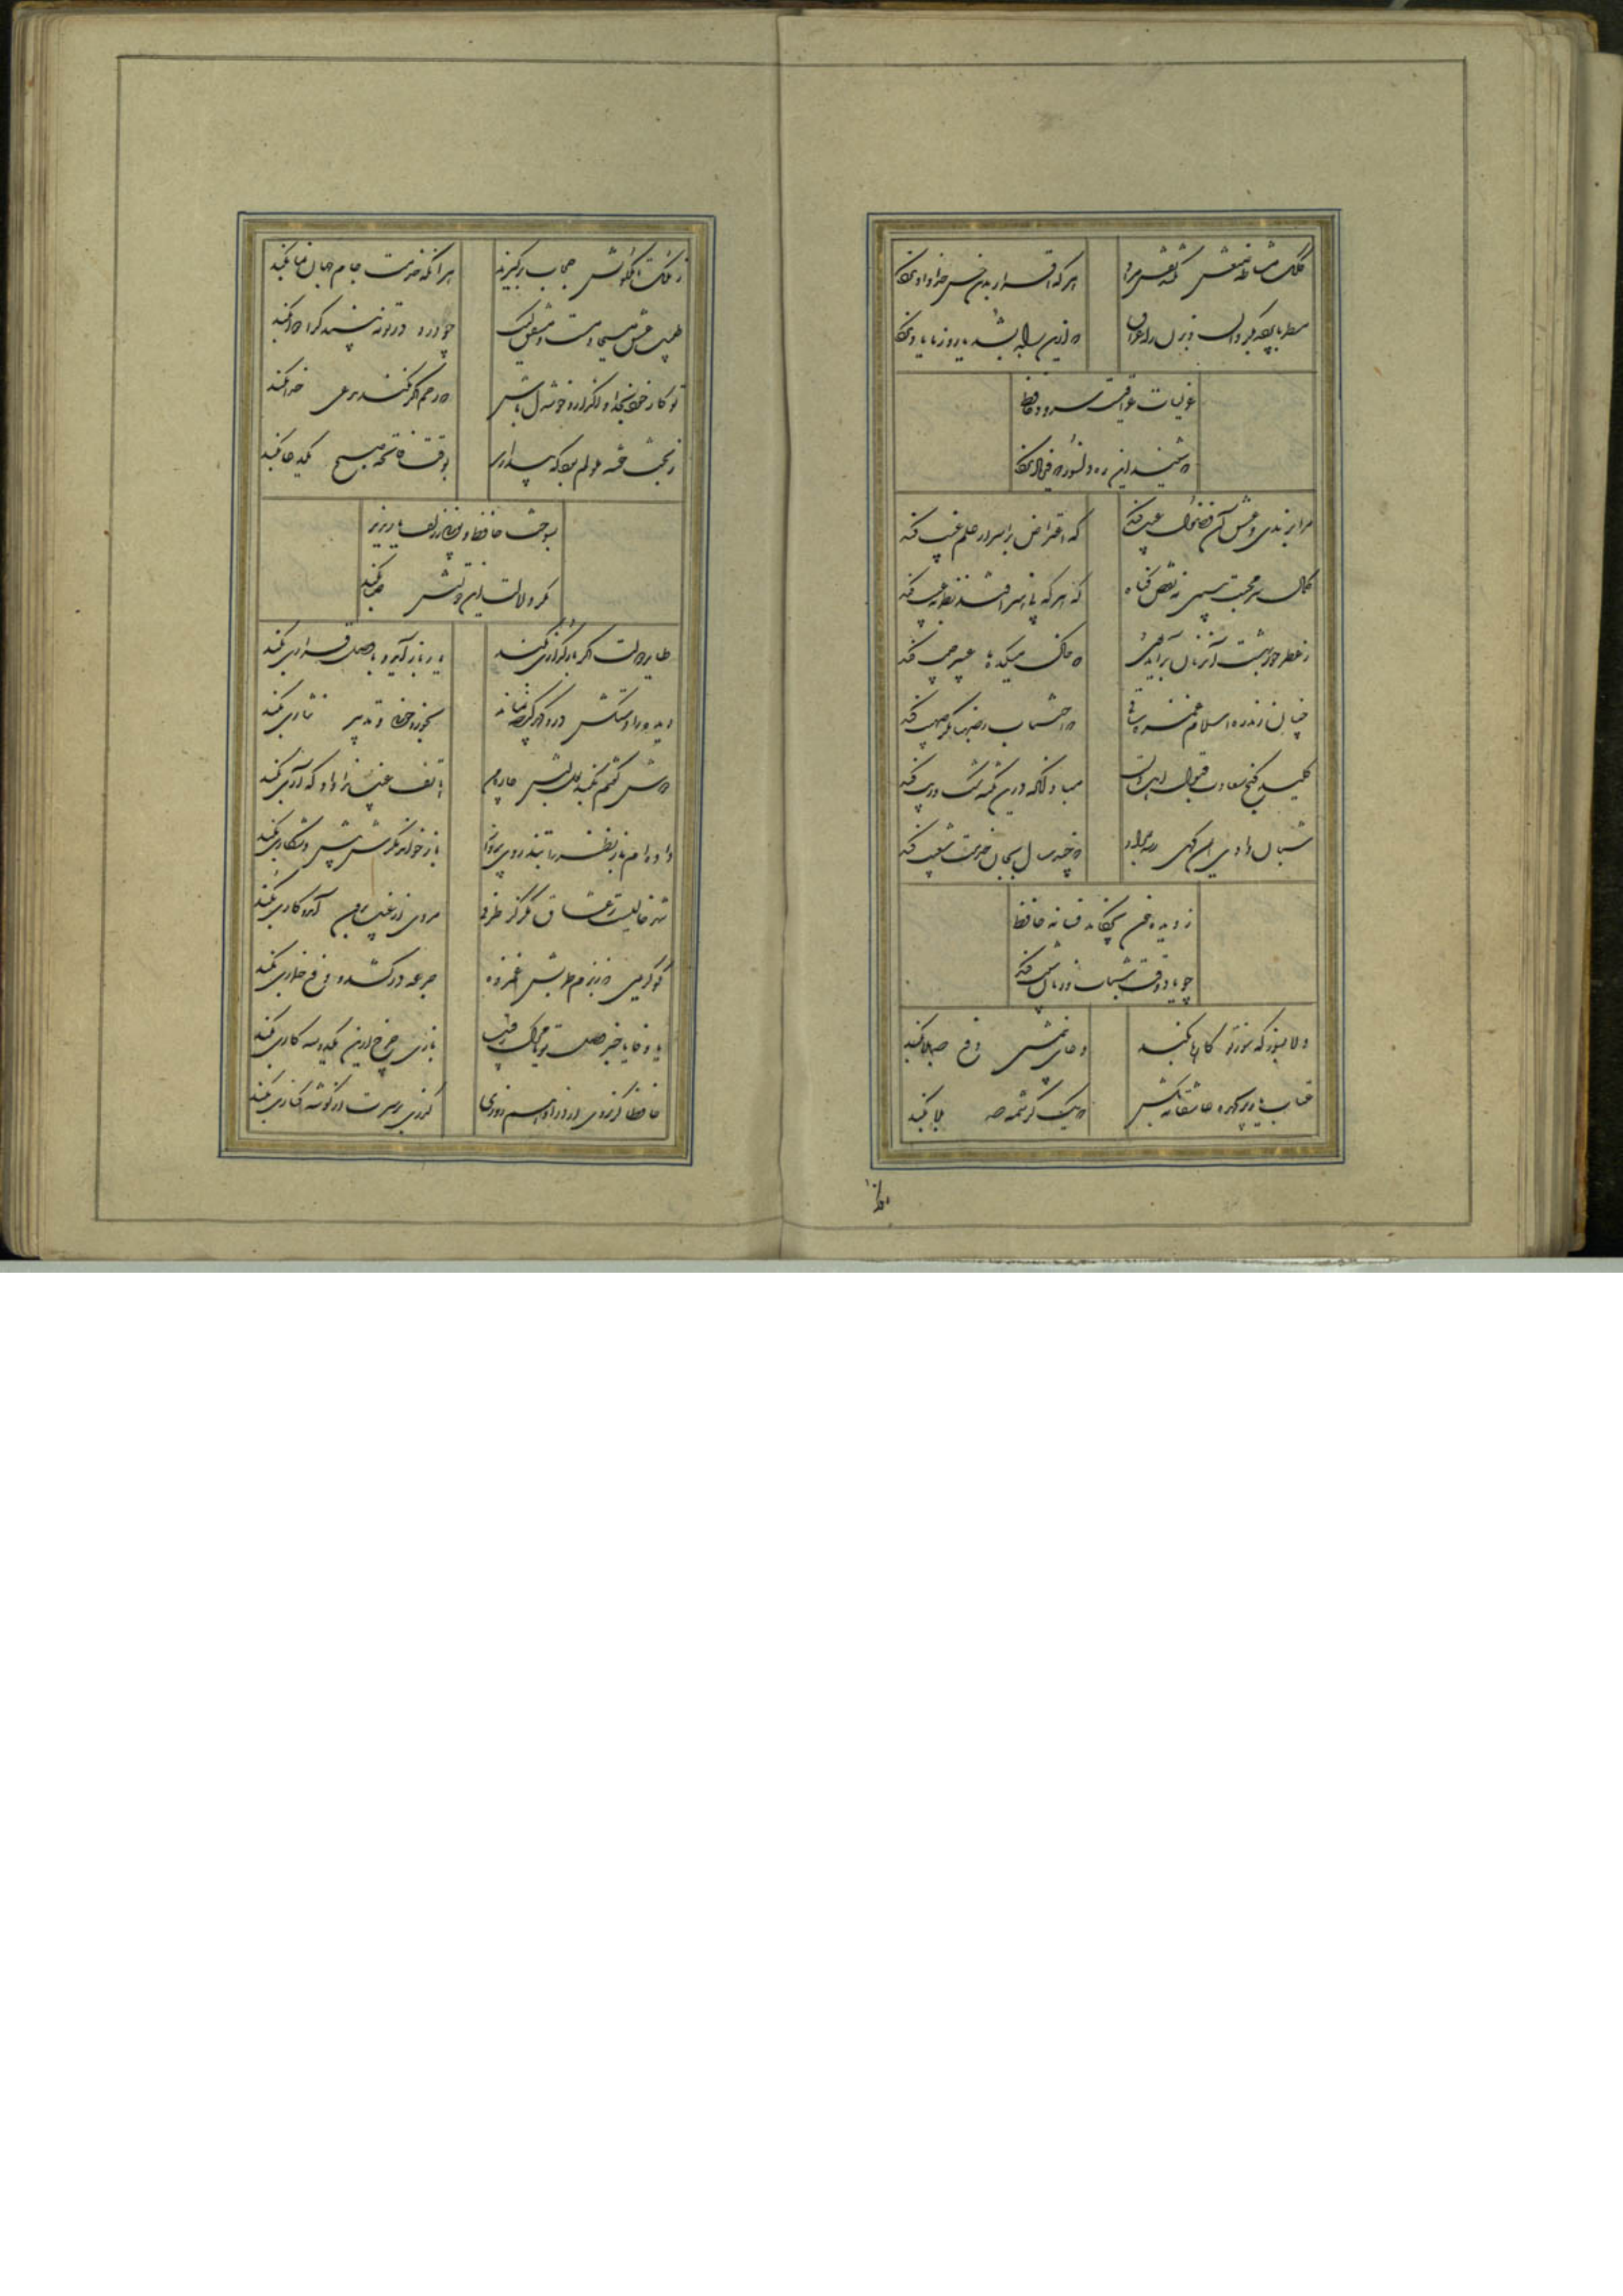 کلک مشاطه صنعش نکشد نقش مراد
هر که اقرار بدین حسن خداداد نکرد
مطربا پرده بگردان و بزن راه عراق
که ازین راه بشد یار و ز ما یاد نکرد
غزلیات عراقیست سرود حافظ
که شنید این ره دلسوز که فریاد نکرد
مرا برندی و عشق آن فضول عیب کند
که اعتراض بر اسرار علم غیب کند
کمال سر محبت ببین نه نقص گناه
که هر که بی هنر افتد نظر بعیب کند
ز عطر حور بهشت آن زمان برآید بوی
که خاک میکده ما عبیر جیب کند
چنان زند ره اسلام غمزه ساقی
که اجتناب ز صهبا مگر صهیب کند
کلید گنج سعادت قبول اهل دلست
مباد آنکه درین نکته شک و ریب کند
شبان وادی ایمن گهی رسد بمراد
که چند سال بجان خدمت شعیب کند
ز دیده خون بچکاند فسانه حافظ
چو یاد وقت شباب و زمان شیب کند
دلا بسوز که سوز تو کارها بکند
دعای نیمشبی دفع صد بلا بکند
عتاب یار پریچهره عاشقانه بکش
که یک کرشمه صد بلا بکند
ز ملک تا ملکوتش حجاب برگیرند
هر آنکه خدمت جام جهان نما بکند
طبیب عشق مسیحا دمست و مشفق لیک
چو درد در تو نبیند کرا دوا بکند
تو کار خود بخدا واگذار و خوشدل باش
که رحم اگر نکند مدعی خدا بکند
ز بخت خفته ملولم بود که بیداری
بوقت فاتحه صبح یک دعا بکند
بسوخت حافظ و بویی ز زلف یار نبرد
مگر دلالت این دولتش صبا بکند
طایر دولت اگر باز گذاری بکند
یار باز آید و با وصل قراری بکند
دیده را دستگه در و گهر گرچه نماند
بخورد خونی و تدبیر نثاری بکند
دوش گفتم بکند لعل لبش چاره من
هاتف غیب ندا داد که آری بکند
داده ام باز نظر را بتذروی پرواز
باز خواند مگرش بخت و شکاری بکند
شهر خالیست ز عشاق مگر کز طرفی
مردی از غیب برون آید و کاری بکند
کو کریمی که ز بزم طربش غمزده
جرعه درکشد و دفع خماری بکند
یا وفا یا خبر وصل تو یا مرگ رقیب
بازی چرخ ازین یک دو سه کاری بکند
حافظا گر نروی از در او هم روزی
گذری بر سرت از گوشه کناری بکند